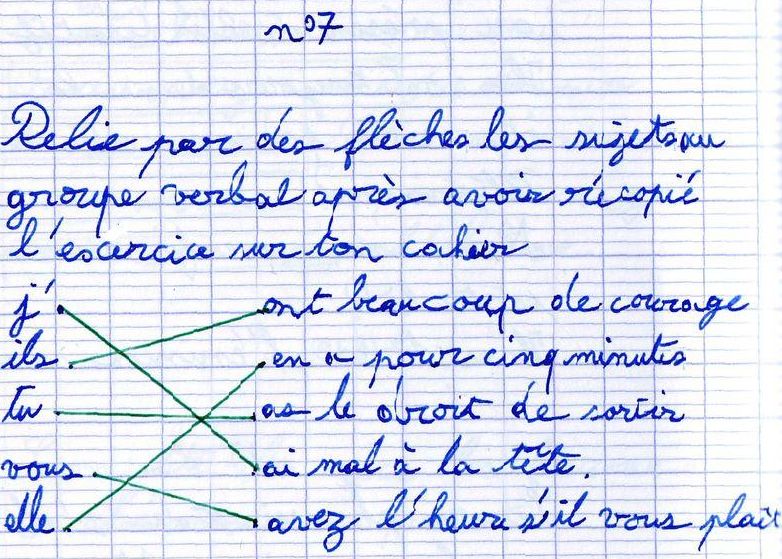 n°7
Relie par des flèches les sujets au
groupe verbal après avoir récopié
l'excercice sur ton cahier
j' ont beaucoup de courage
ils en a pour cinq minutes
tu as le droit de sortir
vous ai mal à la tête.
elle avez l'heure s'il vous plait